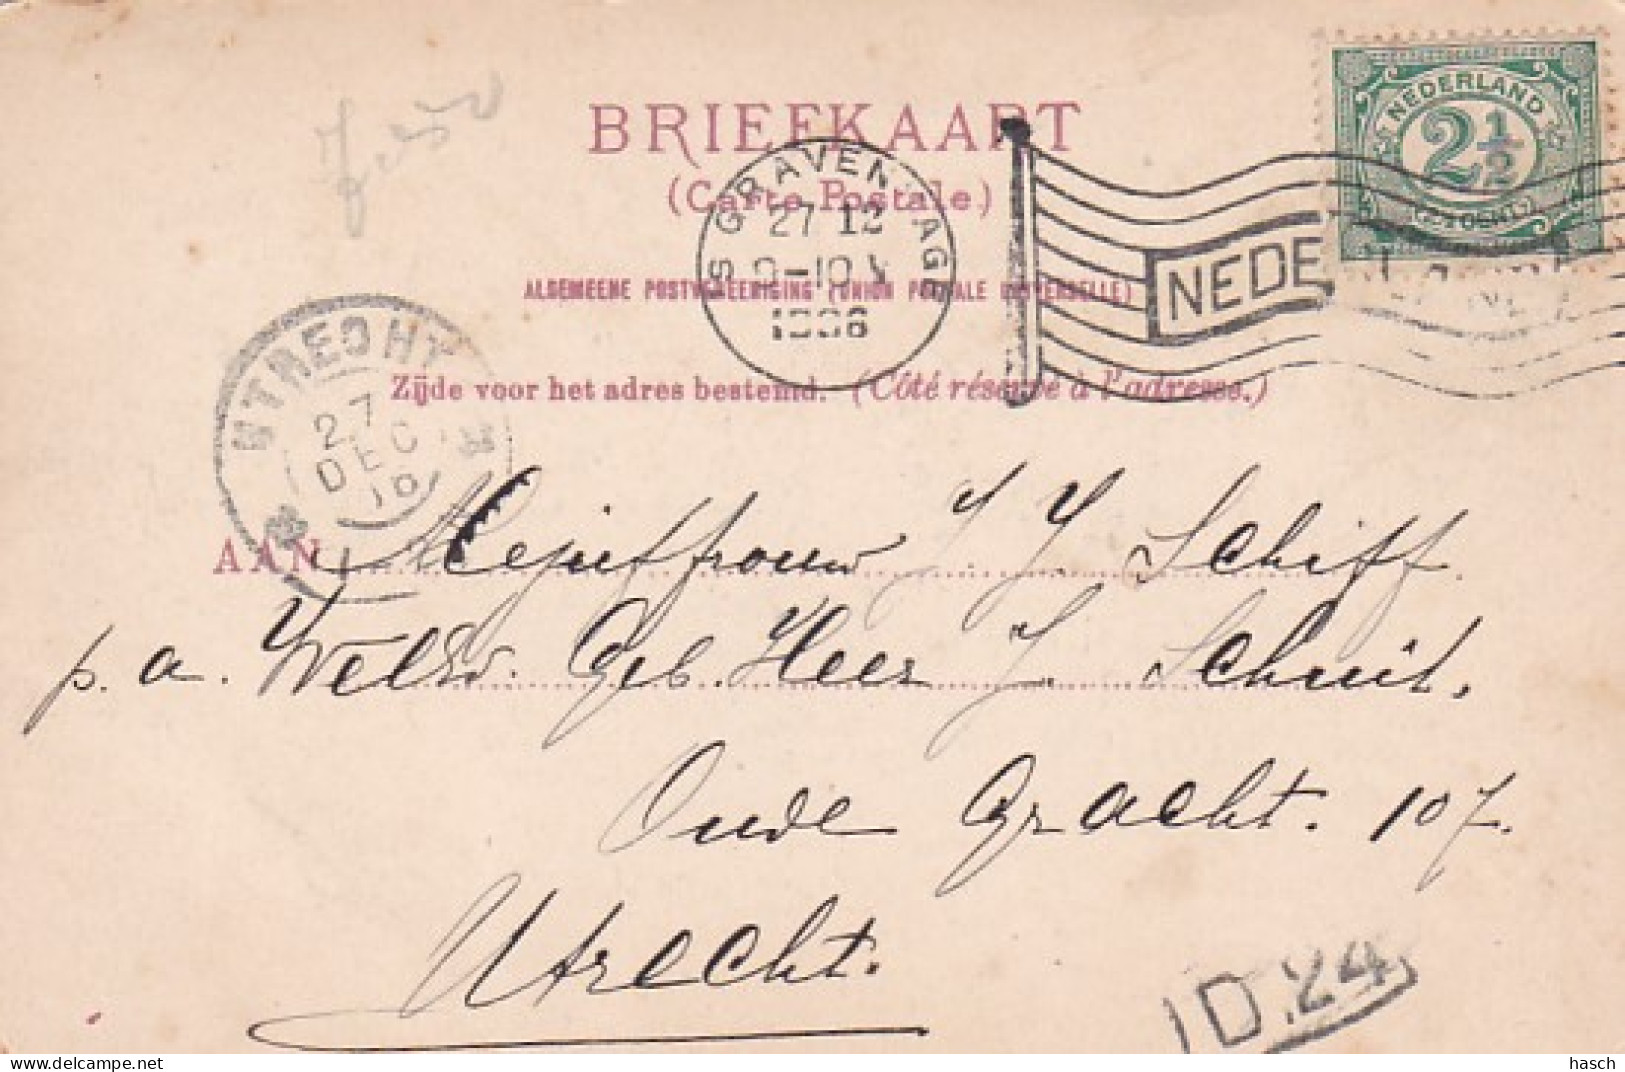 BRIEFKAART
(Carte Postale.)
ALGEMEENE POSTVEREENIGING (UNION POSTALE UNIVERSELLE)
Zijde voor het adres bestemd. (Côté réservé à l'adresse.)
NEDERLAND
2½
S GRAVENHAGE
27 12
1906
NEDE
UTRECHT
27
DEC
AAN Mejuffrouw J. J. Schiff.
p. a. WelEd. Geb. Heer J. Schuit.
Oude Gracht. 107.
Utrecht.
D.24
hasch